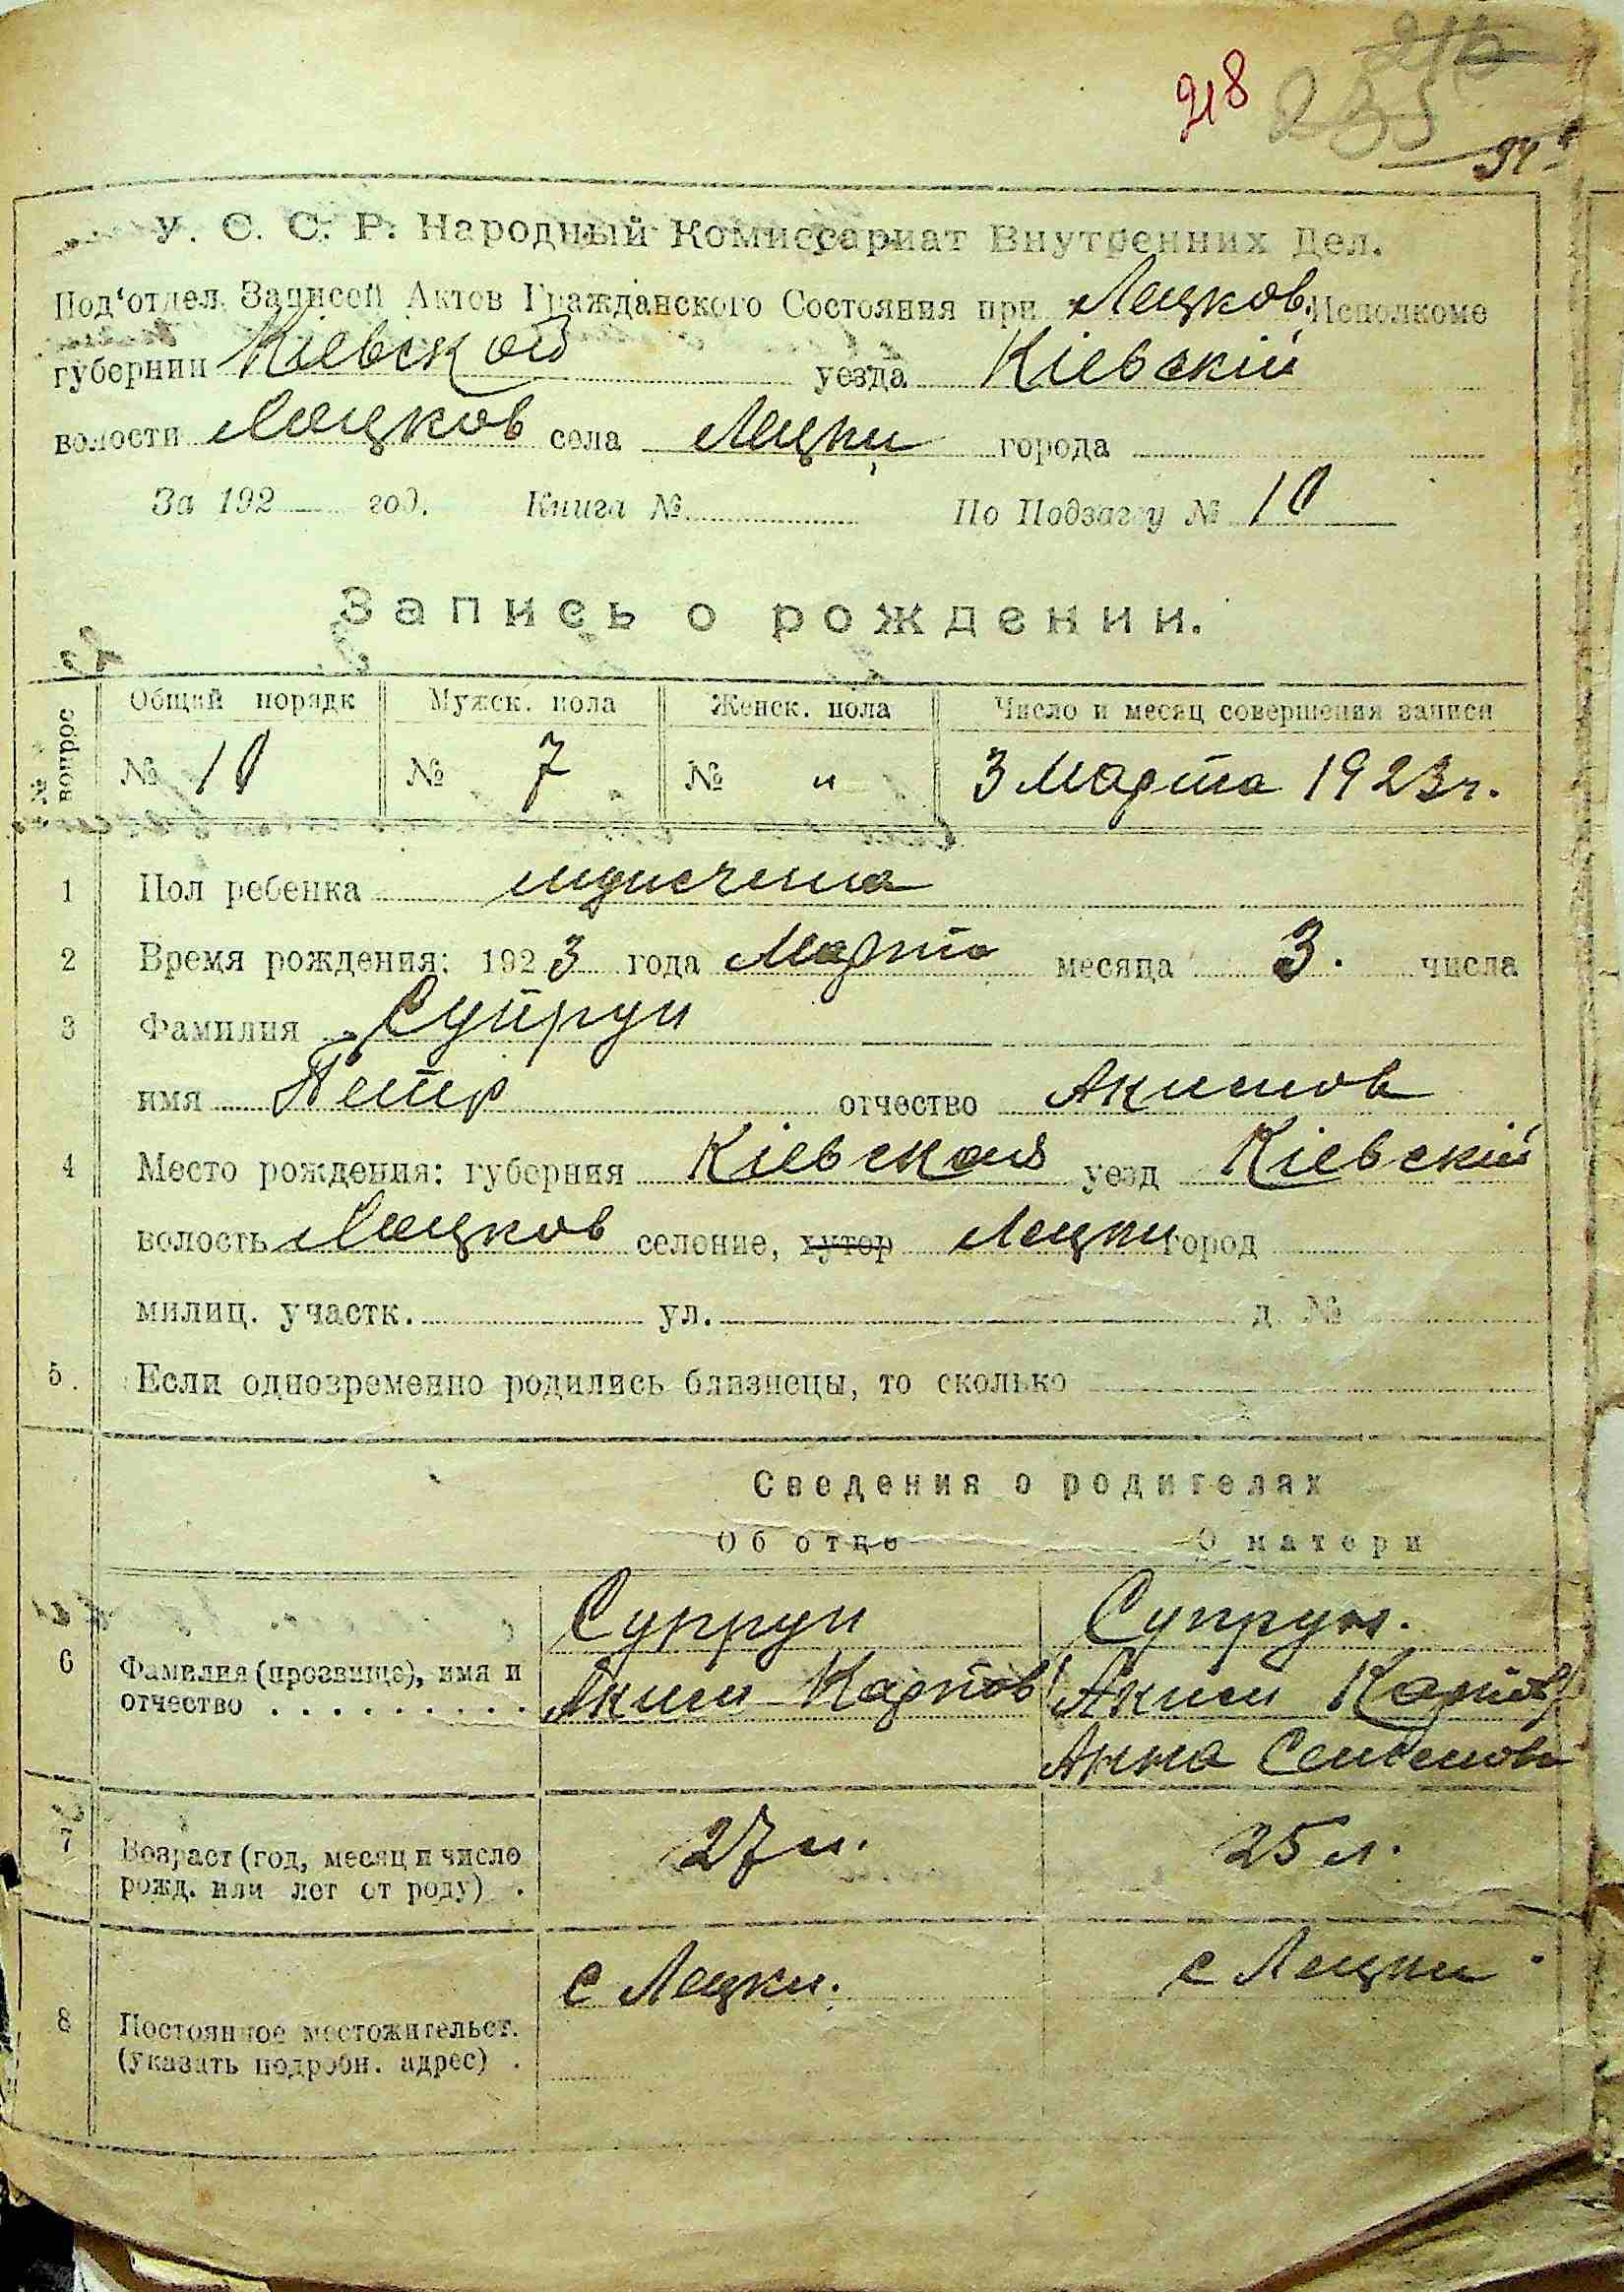 218
235
У. С. С. Р. Народный Комиссариат Внутренних Дел.
Под'отдел Записей Актов Гражданского Состояния при Лецков. Исполкоме
губернии Кіевской уезда Кіевскій
волости Лецков села Лецки города
За 192 год. Книга № По Подзагсу № 10
Запись о рождении.
№№ вопрос
Общий порядк Мужск. пола Женск. пола Число и месяц совершения записи
№ 10 № 7 № " 3 Марта 1923 г.
1 Пол ребенка
2 Время рождения: 1923 года Марта месяца 3. числа
3 Фамилия Супрун
имя Петр отчество Акимов
4 Место рождения: губерния Кіевской уезд Кіевскій
волость Лецков селение, хутор Лецки город
милиц. участк. ул. д. №
5. Если одновременно родились близнецы, то сколько
Сведения о родителях
Об отце О матери
Супрун Супрун.
6 Фамилия (прозвище), имя и Аким Карпов Аким Карпов
отчество . . . . . . . . . .
Анна Семенова
7 27 л. 25 л.
Возраст (год, месяц и число
рожд. или лет от роду) .
с Лецки. с Лецки
8 Постоянное местожительст.
(указать подробн. адрес) .